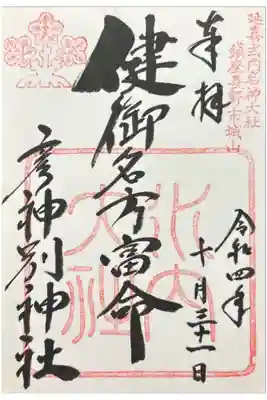 延喜式内名神大社
鎮座長野市城山
奉拝
令和四年
十月三十一日
健御名方富命
彦神別神社
水内
大社